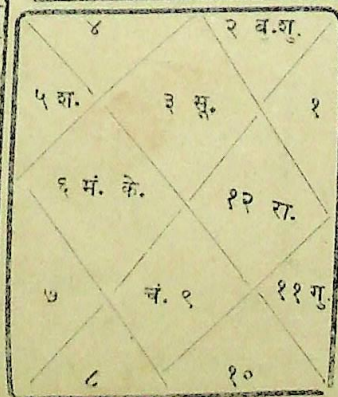 ४ २ बु.शु.
५ श. ३ सू. १
६ मं. के. १२ रा.
७ चं. ९ ११ गु.
८ १०